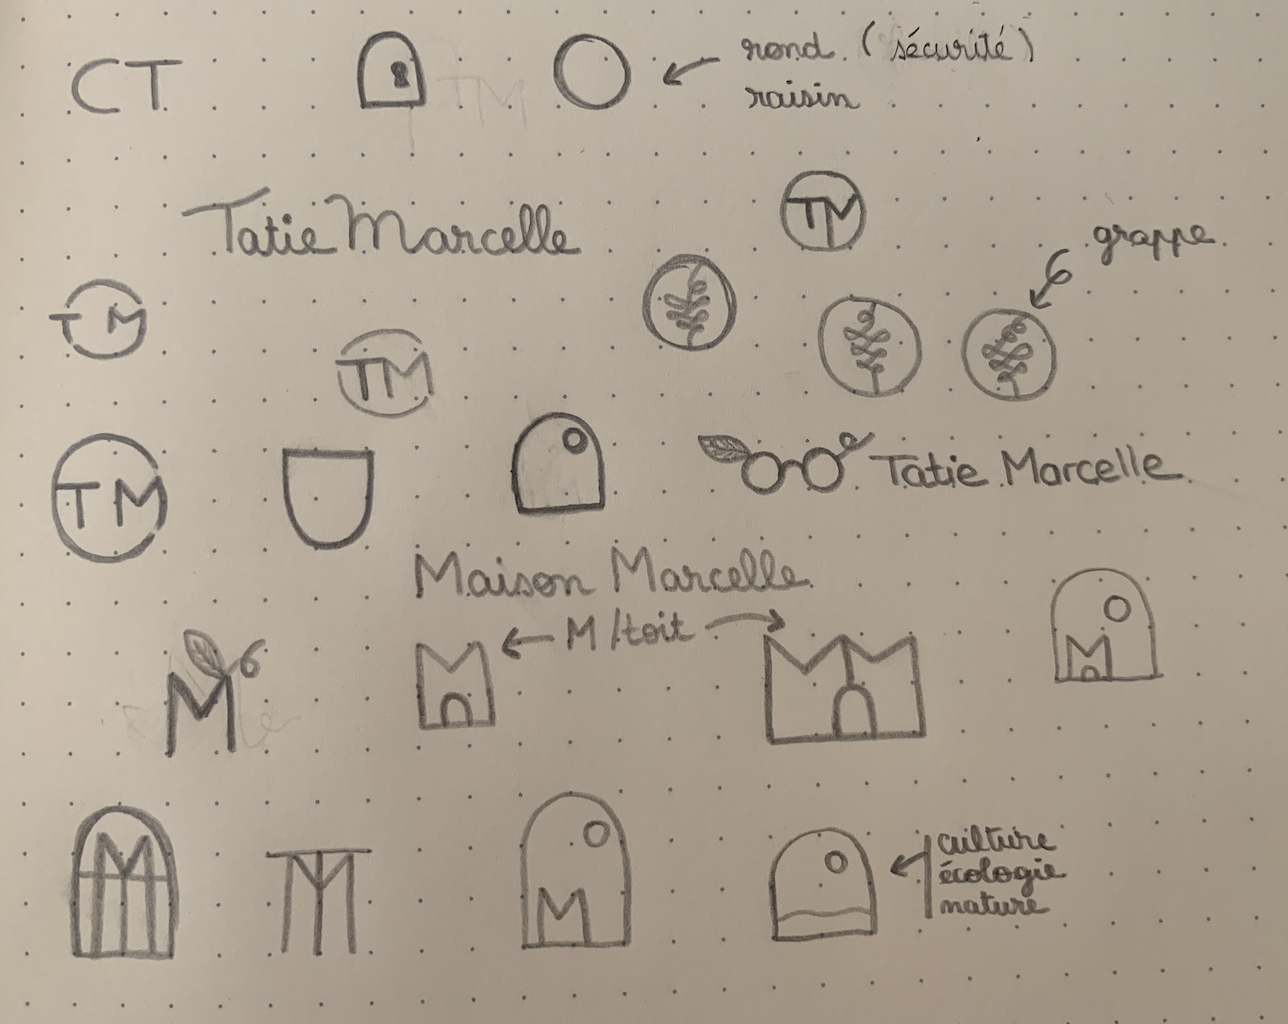 CT
rond (sécurité)
raisin
TM
Tatie Marcelle
TM
grappe
TM
TM
TM
Tatie Marcelle
Maison Marcelle
M/toit
M
M
M
TM
M
culture
écologie
nature